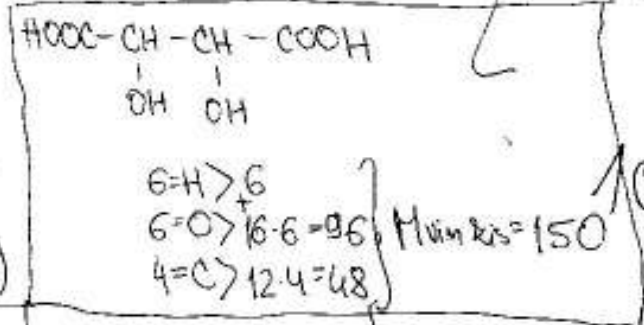 HOOC-CH-CH-COOH
OH OH
6=H>6
+
6=O>16·6=96
4=C>12·4=48
Mvin kis=150